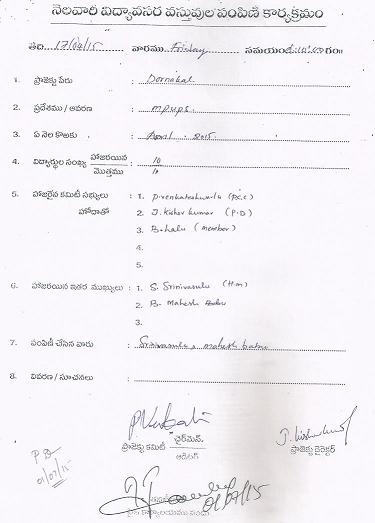 నెలవారీ విద్యావసర వస్తువుల పంపిణి కార్యక్రమం
తేది 17/04/15 వారము Friday సమయం
1. ప్రాజెక్టు పేరు : Dornakal
2. ప్రదేశము / ఆవరణ : MPUPS.
3. ఏ నెల కొఱకు : April - 2015
4. విద్యార్థుల సంఖ్య హాజరయిన : 10
మొత్తము 10
5. హాజరైన కమిటీ సభ్యులు : 1. P. venkateshwarlu (P.C.C)
హోదాతో 2. J. Kishor kumar (P.D)
3. B. Lalu (member)
4.
5.
6. హాజరయిన ఇతర ముఖ్యులు : 1. S. Srinivasulu (H.M)
2. B. Mahesh Babu
3.
7. పంపిణీ చేసిన వారు : Srinivasulu, mahesh babu
8. వివరణ / సూచనలు :
ప్రాజెక్టు కమిటీ ఛైర్మెన్.
ఆడిటర్
ప్రాజెక్టు డైరెక్టర్
P.D
01/07/15
01/07/15